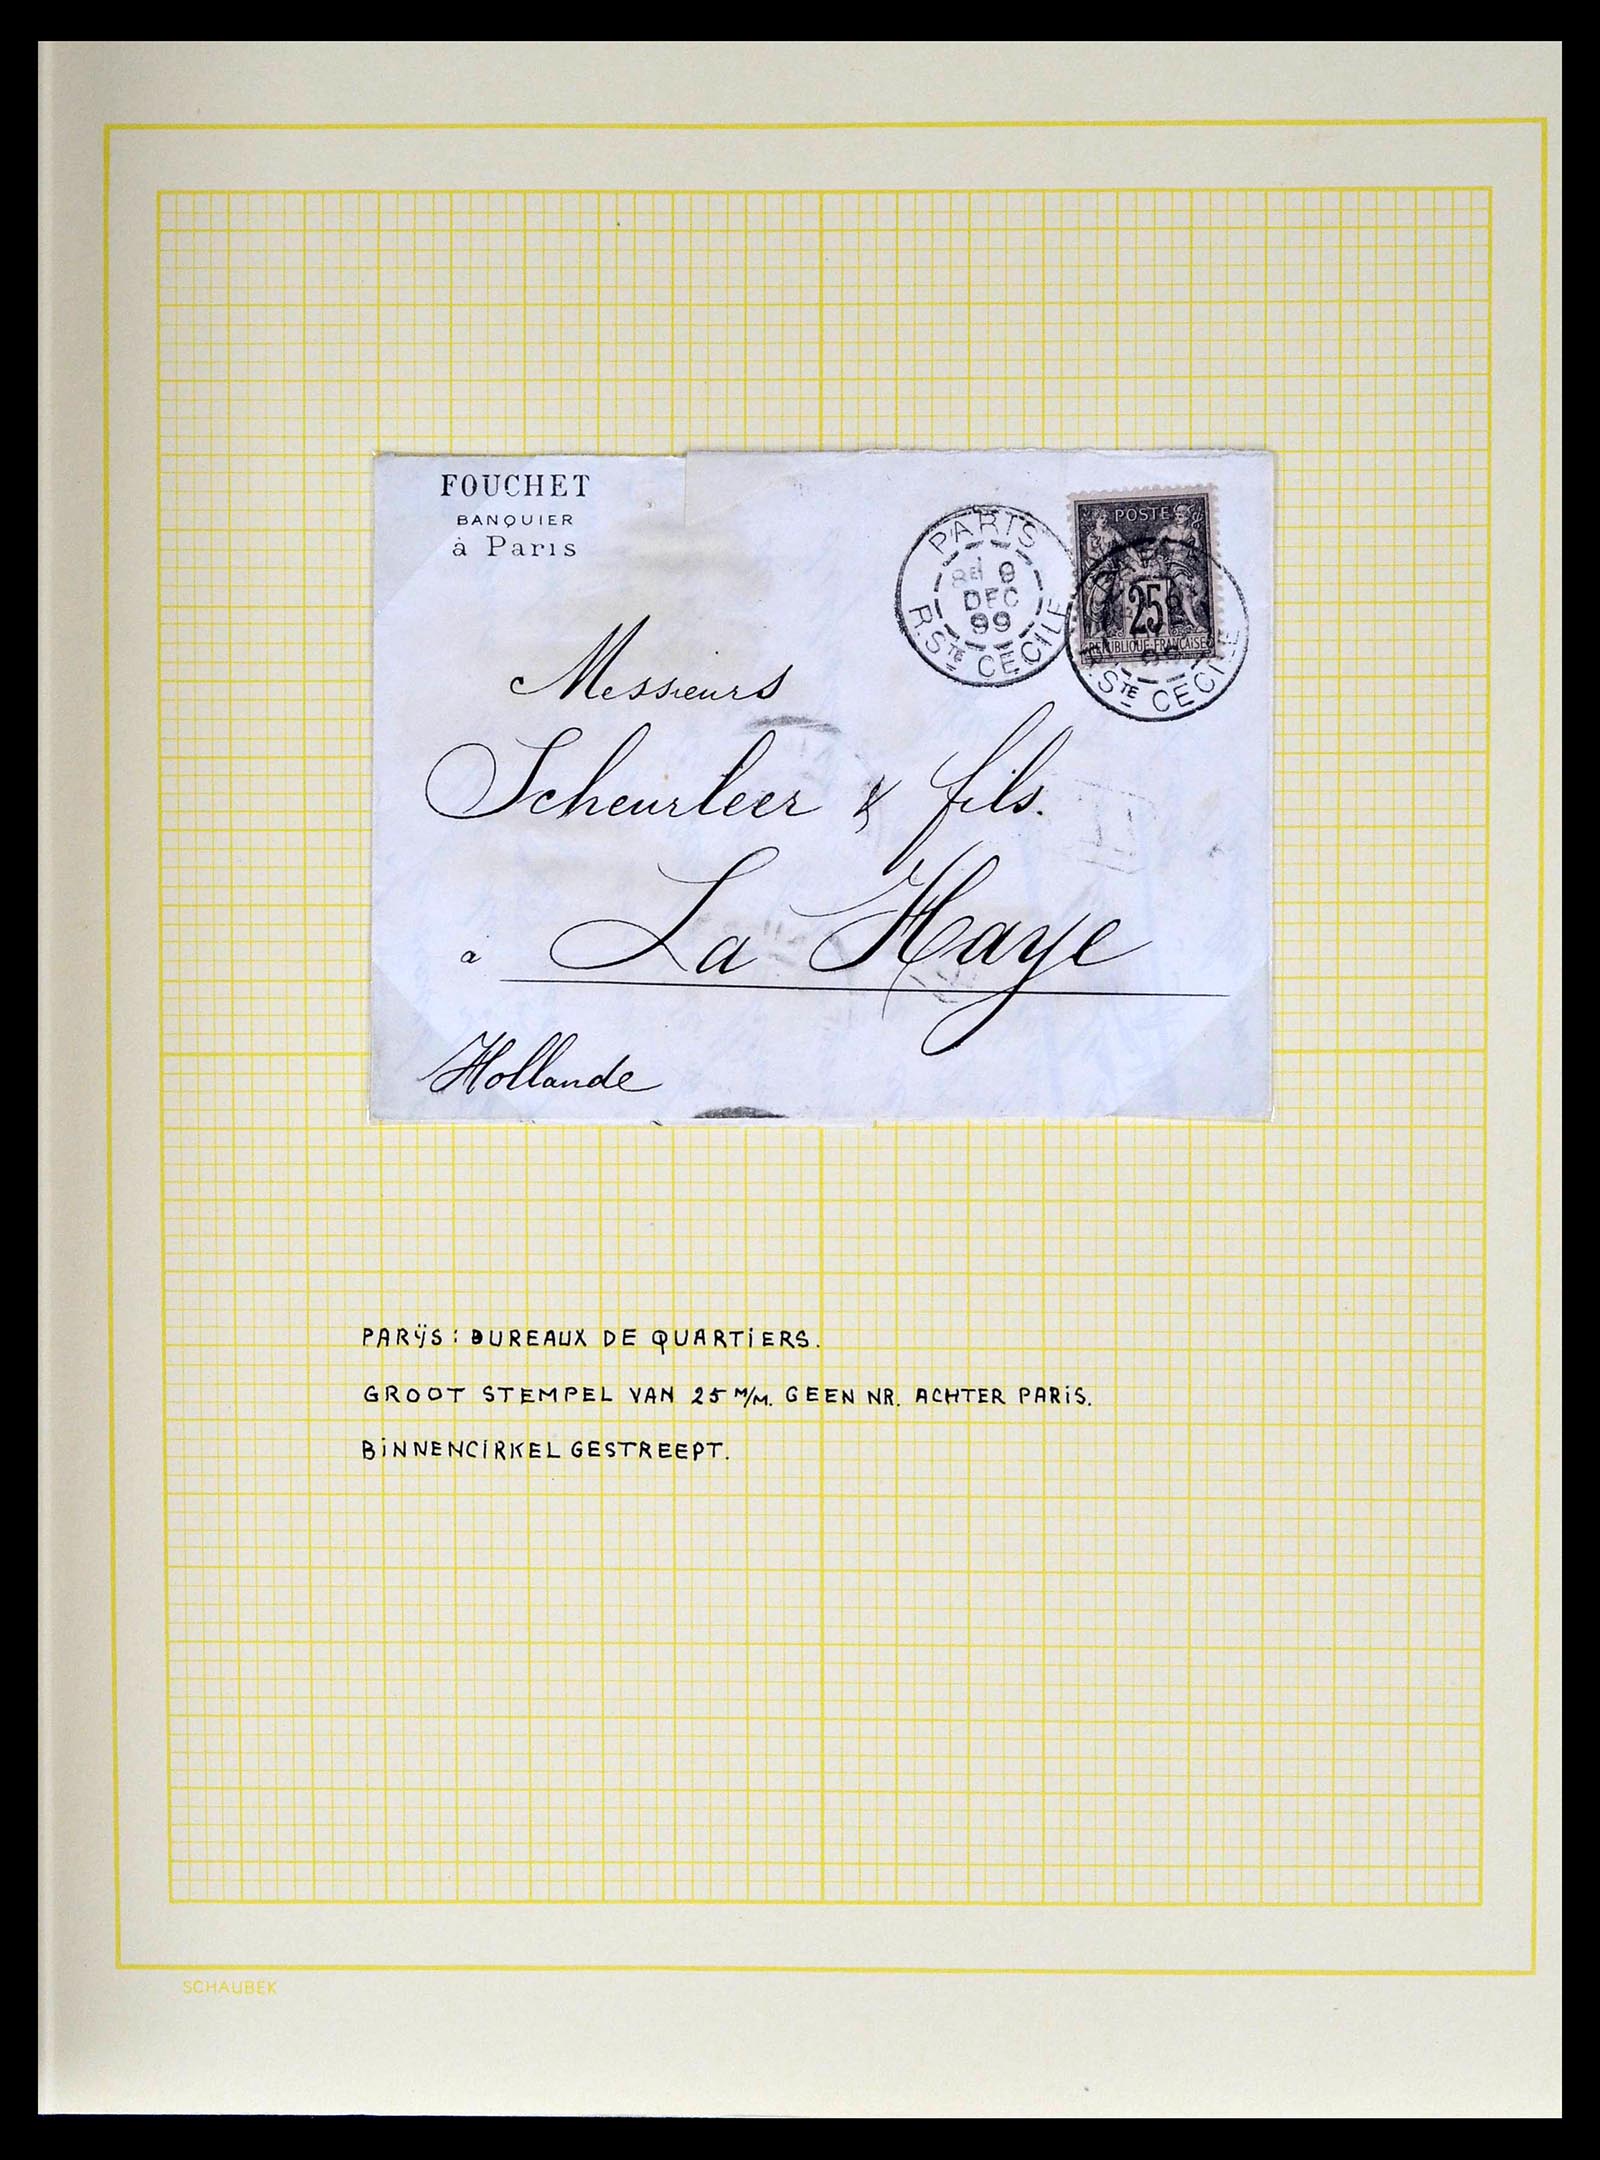 FOUCHET
BANQUIER
à Paris
PARIS
8E 9
DEC
99
R. STE CECILE
POSTE
25
REPUBLIQUE FRANÇAISE
STE CECILE
Messieurs
Scheurleer & fils.
à La Haye
Hollande
PARIJS: BUREAUX DE QUARTIERS.
GROOT STEMPEL VAN 25 M/M. GEEN NR. ACHTER PARIS.
BINNENCIRKEL GESTREEPT.
SCHAUBEK